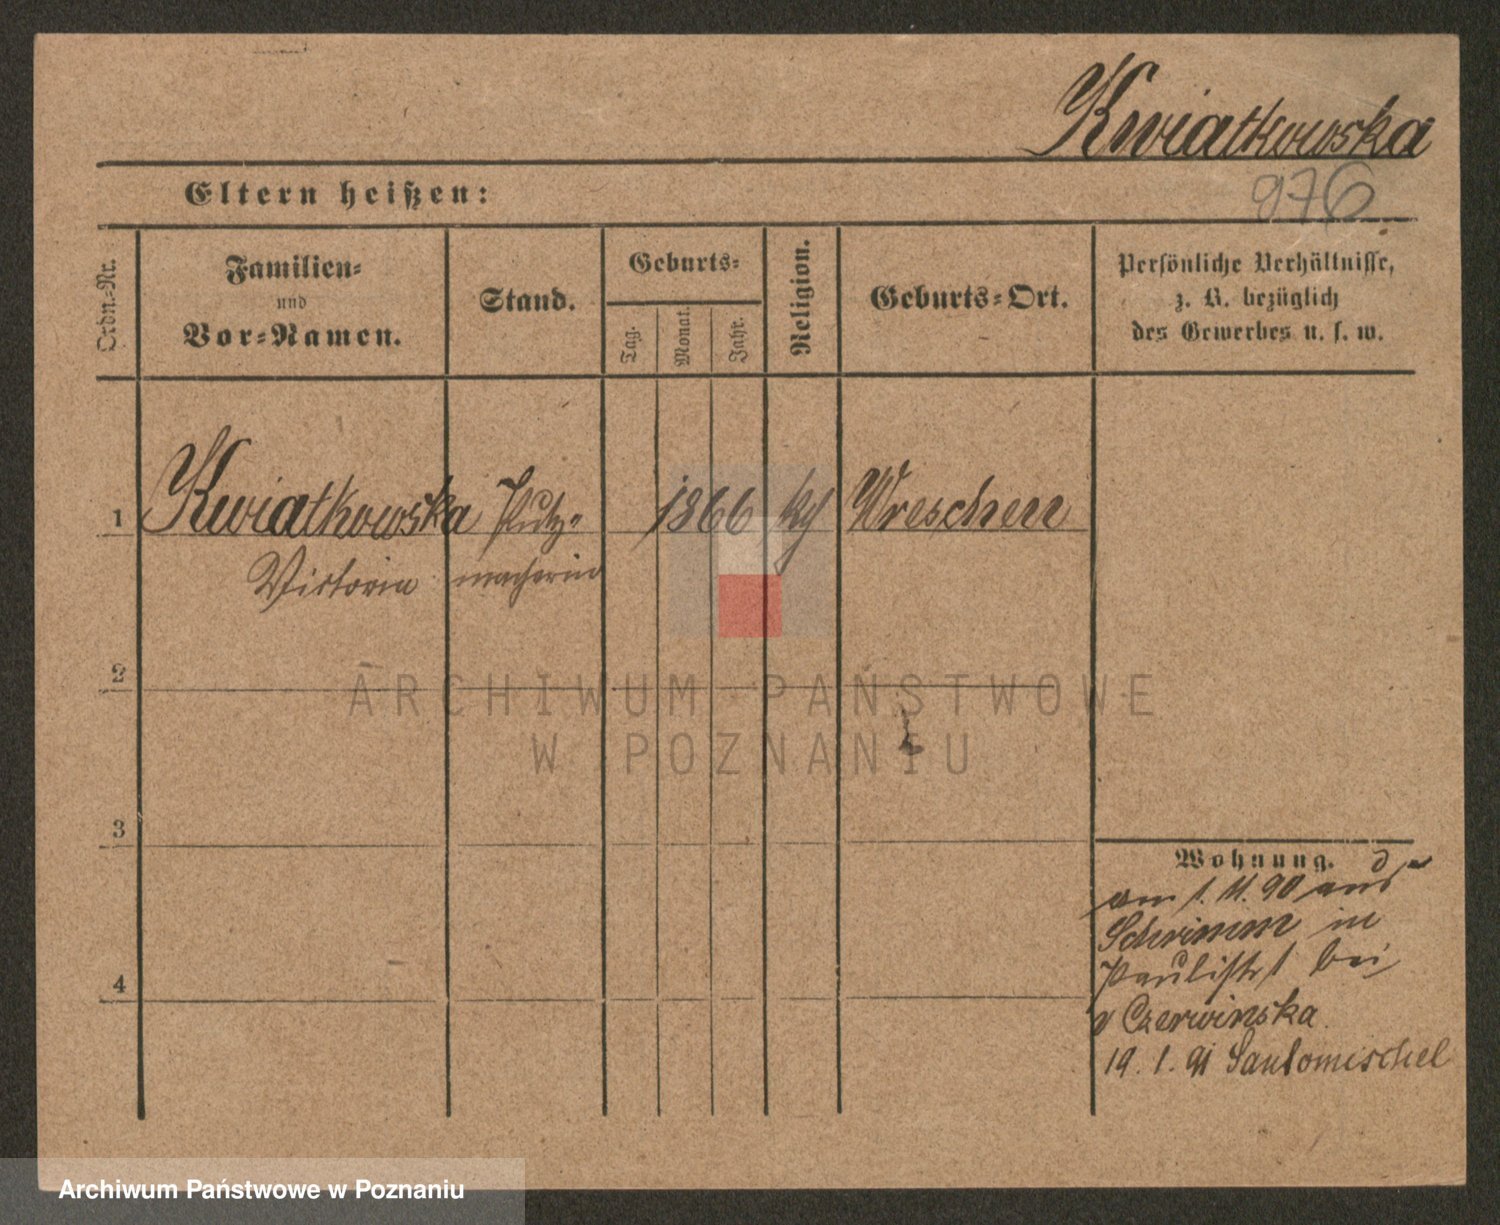 Kwiatkowska
976
Eltern heißen:
Ordn.-Nr.
Familien-
und
Vor-Namen.
Stand.
Geburts-
Tag.
Monat.
Jahr.
Religion.
Geburts-Ort.
Persönliche Verhältnisse,
z. B. bezüglich
des Gewerbes u. s. w.
1 Kwiatkowska Putz- 1866 Wreschen
Victoria macherin
2
3
4
Wohnung.
am 1. 11. 90 aus
Schrimm in
Paulistr 1 bei
Czerwinska
19. 1. 91 Santomischel
ARCHIWUM PAŃSTWOWE
W POZNANIU
Archiwum Państwowe w Poznaniu